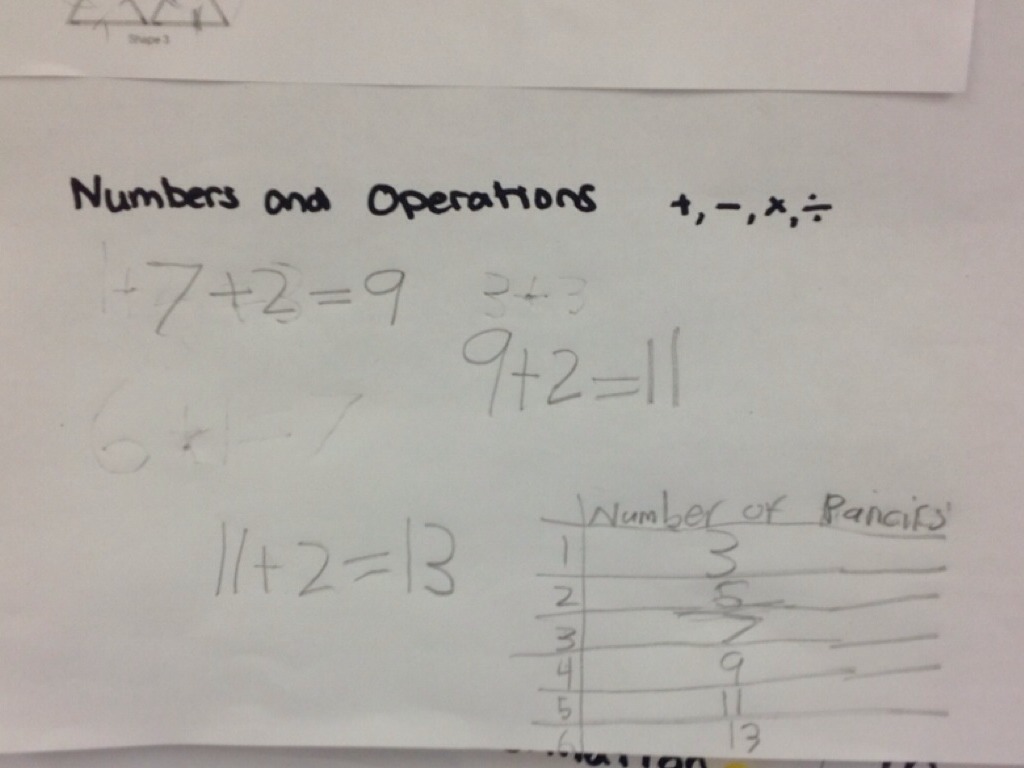 Shape 3
Numbers and Operations +, -, ×, ÷
7+2=9
3+3
9+2=11
11+2=13
Number of Pancirs
1 3
2 5
3 7
4 9
5 11
6 13